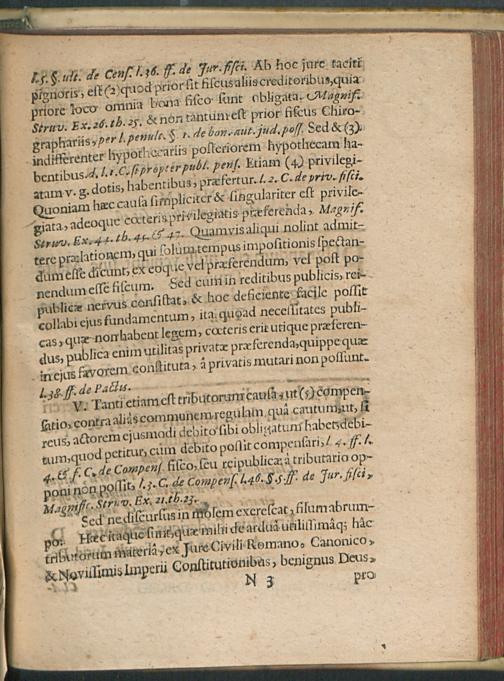 l. 5. §. ult. de Cens. l. 36. ff. de Jur. fisci. Ab hoc jure taciti
pignoris, est (2) quod prior sit fiscus aliis creditoribus, quia
priore loco omnia bona fisco sunt obligata. Magnif.
Struv. Ex. 26. th. 25. & non tantum est prior fiscus Chiro-
graphariis, per l. penult. §. 1. de bon. aut. jud. poss. Sed & (3)
indifferenter hypothecariis posteriorem hypothecam ha-
bentibus. d. l. 1. C. si propter publ. pens. Etiam (4) privilegi-
atam v. g. dotis, habentibus, præfertur. l. 2. C. de priv. fisci.
Quoniam hæc causa simpliciter & singulariter est privile-
giata, adeoque cœteris privilegiatis præferenda, Magnif.
Struv. Ex. 44. th. 45. & 47. Quamvis aliqui nolint admit-
tere prælationem, qui solum tempus impositionis spectan-
dum esse dicunt, ex eoque vel præferendum, vel post po-
nendum esse fiscum. Sed cum in reditibus publicis, rei-
publicæ nervus consistat, & hoc deficiente facile possit
collabi ejus fundamentum, ita quoad necessitates publi-
cas, quæ non habent legem, cœteris erit utique præferen-
dus, publica enim utilitas privatæ præferenda, quippe quæ
in ejus favorem constituta, â privatis mutari non possunt.
l. 38. ff. de Pactis.
V. Tanti etiam est tributorum causa, ut (5) compen-
satio, contra aliàs communem regulam quâ cautum, ut, si
reus, actorem ejusmodi debito sibi obligatum habet, debi-
tum, quod petitur, cum debito possit compensari, l. 4. ff. l.
4. & f. C. de Compens. fisco, seu reipublicæ à tributario op-
poni non possit, l. 3. C. de Compens. l. 46. §. 5. ff. de Jur. fisci,
Magnific. Struv. Ex. 21. th. 23.
Sed ne discursus in molem exerescat, filum abrum-
po. Hæc itaque sint, quæ mihi de arduâ utilissimâq; hâc
tributorum materiâ, ex Jure Civili Romano, Canonico,
& Novissimis Imperii Constitutionibus, benignus Deus,
N 3 pro